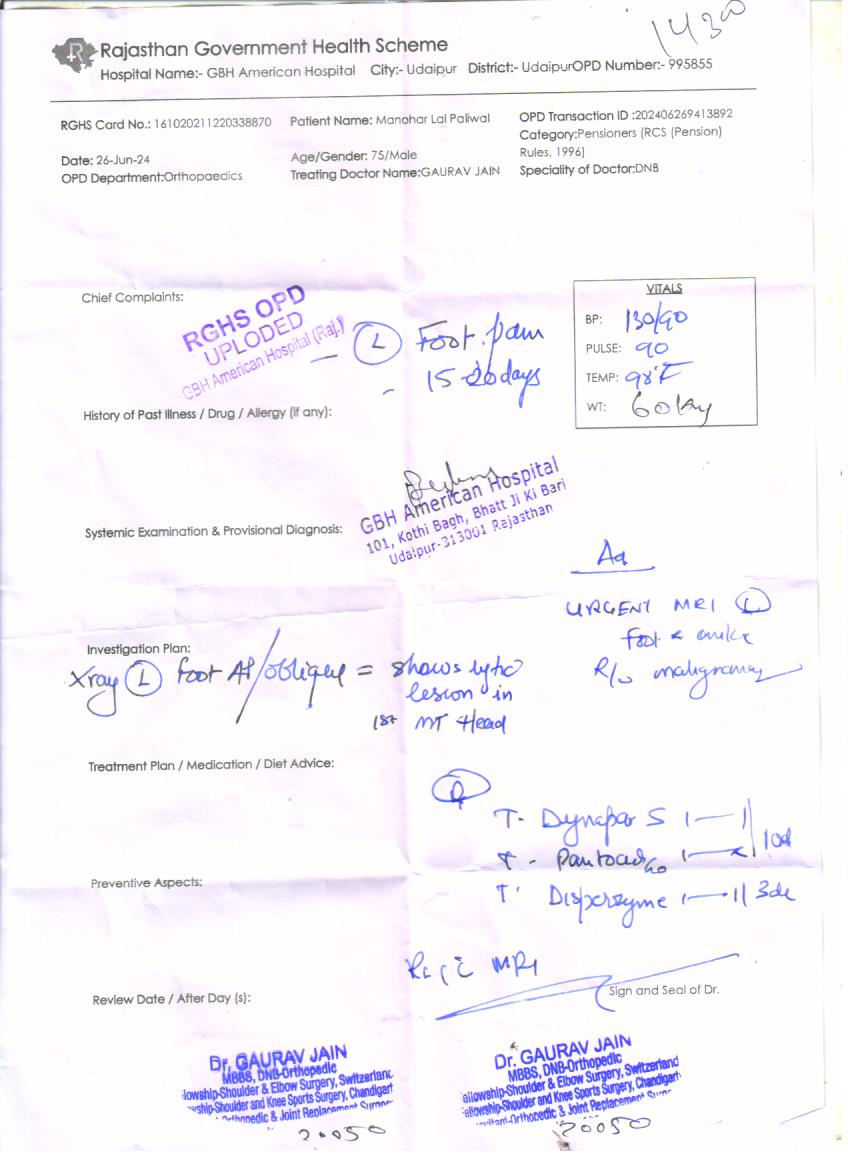 1430
Rajasthan Government Health Scheme
Hospital Name:- GBH American Hospital City:- Udaipur District:- UdaipurOPD Number:- 995855
RGHS Card No.: 161020211220338870 Patient Name: Manohar Lal Paliwal OPD Transaction ID :202406269413892
Category:Pensioners (RCS (Pension) Rules, 1996)
Date: 26-Jun-24 Age/Gender: 75/Male
OPD Department:Orthopaedics Treating Doctor Name:GAURAV JAIN Speciality of Doctor:DNB
Chief Complaints:
RGHS OPD
UPLODED
GBH American Hospital (Raj.)
L Foot pain
15-20 days
VITALS
BP: 130/90
PULSE: 90
TEMP: 98°F
WT: 60 kg
History of Past Illness / Drug / Allergy (if any):
GBH American Hospital
101, Kothi Bagh, Bhatt Ji Ki Bari
Udaipur-313001 Rajasthan
Systemic Examination & Provisional Diagnosis:
URGENT MRI L
foot & ankle
R/o malignancy
Investigation Plan:
Xray L foot AP/oblique = shows lytic
lesion in
1st MT Head
Treatment Plan / Medication / Diet Advice:
T- Dynapar S 1—1
T- Pantocid 40 1—x 10d
T- Disperzyme 1—1
Preventive Aspects:
MRI
Review Date / After Day (s):
Sign and Seal of Dr.
Dr. GAURAV JAIN
MBBS, DNB-Orthopedic
ellowship-Shoulder & Elbow Surgery, Switzerland
wship-Shoulder and Knee Sports Surgery, Chandigarh
Orthopedic & Joint Replacement
20050
Dr. GAURAV JAIN
MBBS, DNB-Orthopedic
ellowship-Shoulder & Elbow Surgery, Switzerland
ellowship-Shoulder and Knee Sports Surgery, Chandigarh
Orthopedic & Joint Replacement
20050